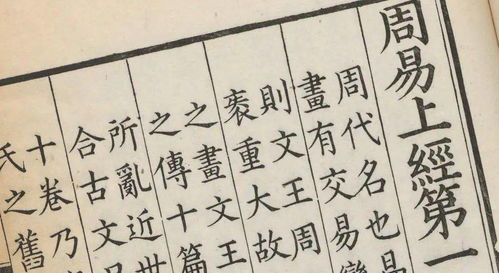 周易上經第一
周代名也
畫有交易變
則文王周
袠重大故
之畫文王
之傳十篇
所亂近世
合古文
十卷乃
氏之舊